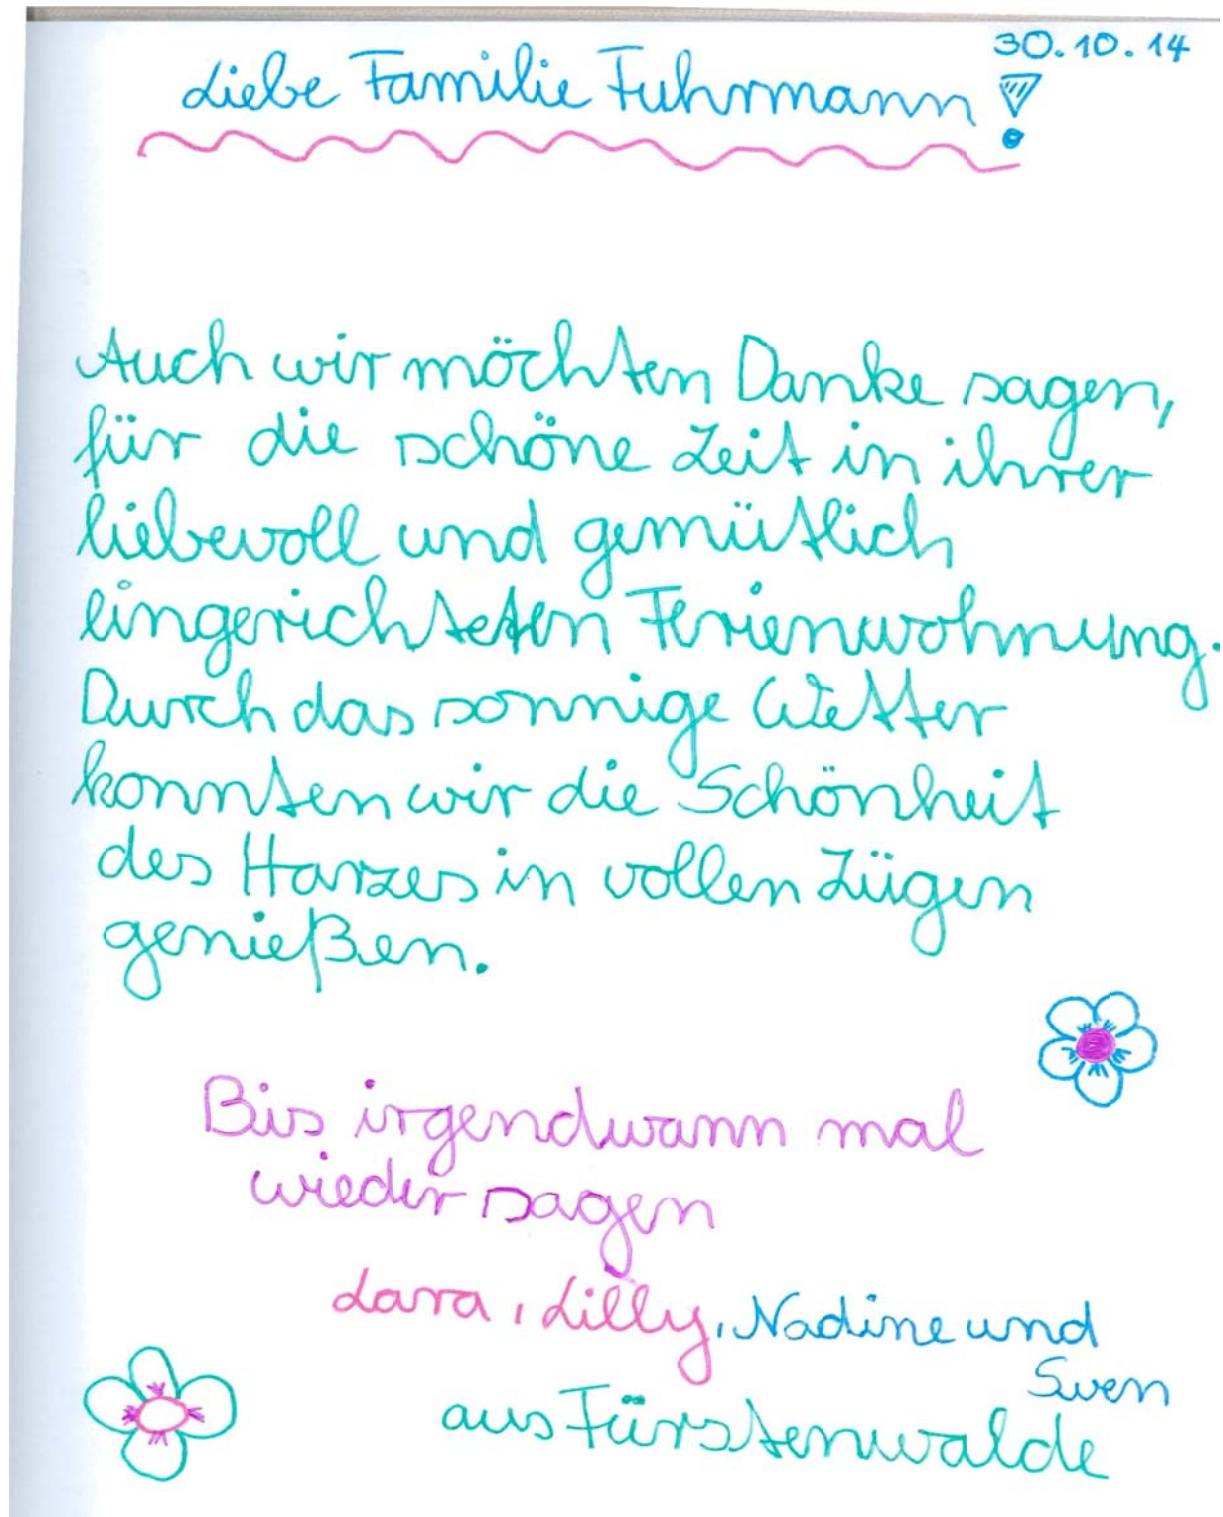 30.10.14
Liebe Familie Fuhrmann!
Auch wir möchten Danke sagen,
für die schöne Zeit in ihrer
liebevoll und gemütlich
eingerichteten Ferienwohnung.
Durch das sonnige Wetter
konnten wir die Schönheit
des Harzes in vollen Zügen
genießen.
Bis irgendwann mal
wieder sagen
Lara, Lilly, Nadine und
Sven
aus Fürstenwalde